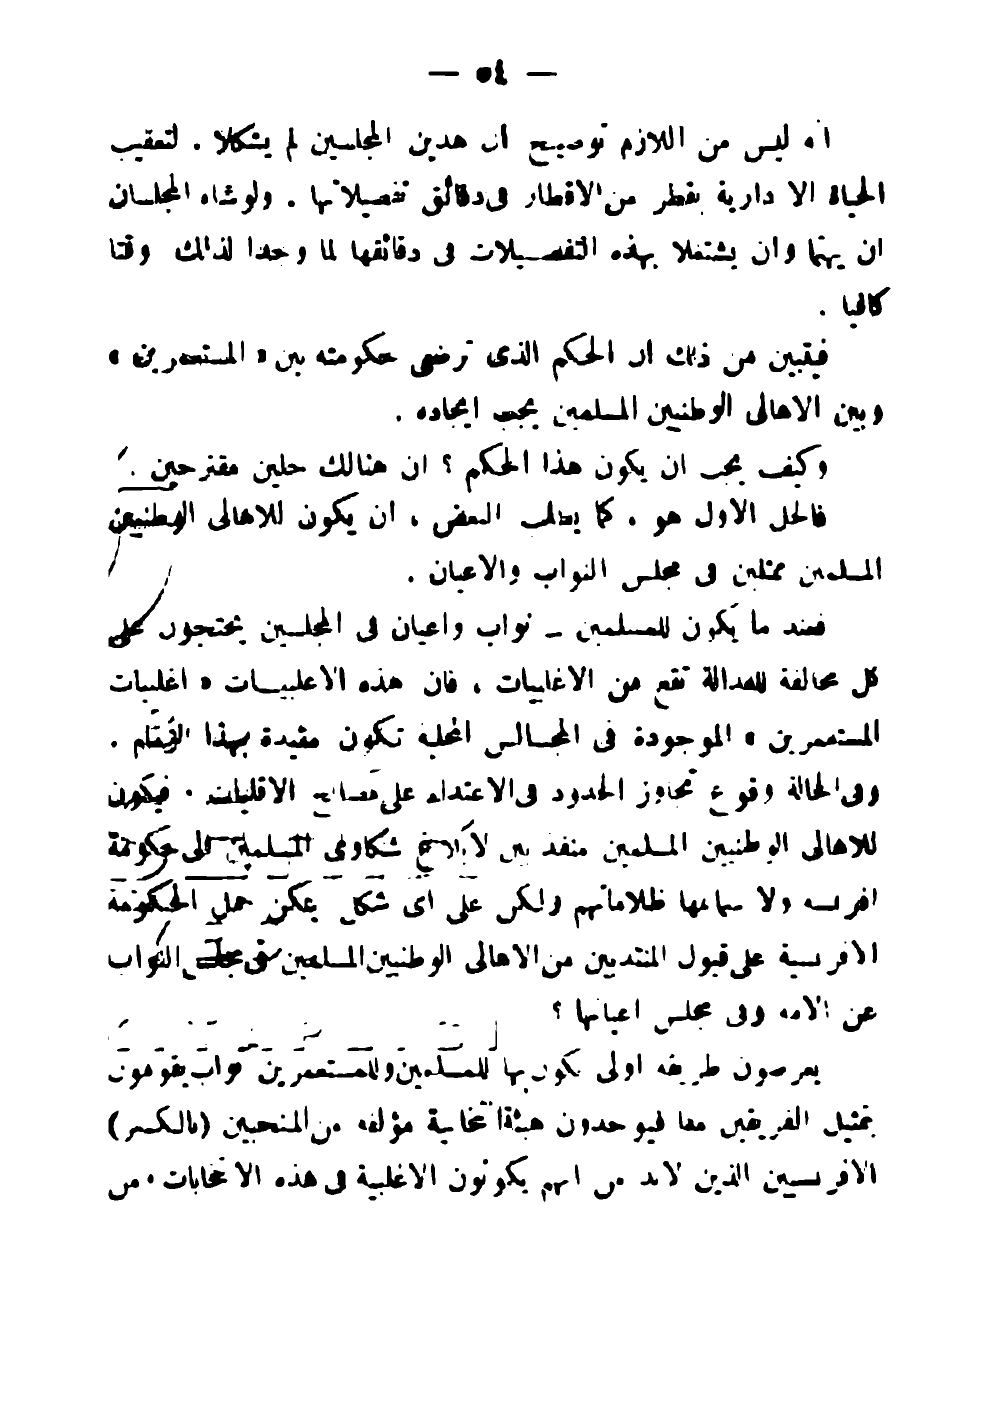 — ٥٤ —
انه ليس من اللازم توضيح ان هذين المجلسين لم يشكلا . لتعقيب
الحياة الا دارية بقطر من الاقطار فى دقائق تفصيلاتها . ولو شاء المجلسان
ان يهتما وان يشتغلا بهذه التفصيلات فى دقائقها لما وجدا لذلك وقتا
كافيا .
فيتبين من ذلك ان الحكم الذى ترضى حكومته بين « المستعمرين »
وبين الاهالى الوطنيين المسلمين يجب ايجاده .
وكيف يجب ان يكون هذا الحكم ؟ ان هنالك حلين مقترحين .
فالحل الاول هو ، كما يطلب البعض ، ان يكون للاهالى الوطنيين
المسلمين ممثلين فى مجلس النواب والاعيان .
فعند ما يكون للمسلمين – نواب واعيان فى المجلسين يحتجون على
كل مخالفة للعدالة تقع من الاغلبيات ، فان هذه الاغلبيات « اغلبيات
المستعمرين » الموجودة فى المجالس المحلية تكون مقيدة بهذا
وفى الحالة وقوع تجاوز الحدود فى الاعتداء على مصالح الاقليات . فيكون
للاهالى الوطنيين المسلمين منفذ بين لابلاغ شكاوى المسلمين الى حكومة
افرنسه ولا سماعها ظلاماتهم ولكن على اى شكل يمكن حمل الحكومة
الافرنسية على قبول المنتدبين من الاهالى الوطنيين المسلمين فى مجلس النواب
عن الامه وفى مجلس اعيانها ؟
يعرضون طريقه اولى يكون بها للمسلمين وللمستعمرين نواب يقومون
بتمثيل الفريقين معا فيوحدون هيئة انتخابية مؤلفه من المنتخبين (بالكسر)
الافرنسيين الذين لابد من انهم يكونون الاغلبية فى هذه الانتخابات ، من